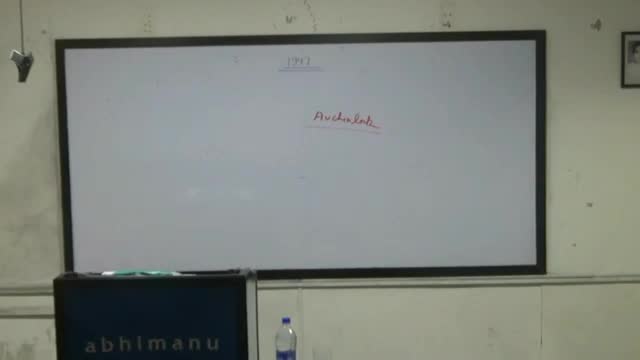 1947
Auchinleck
abhimanu